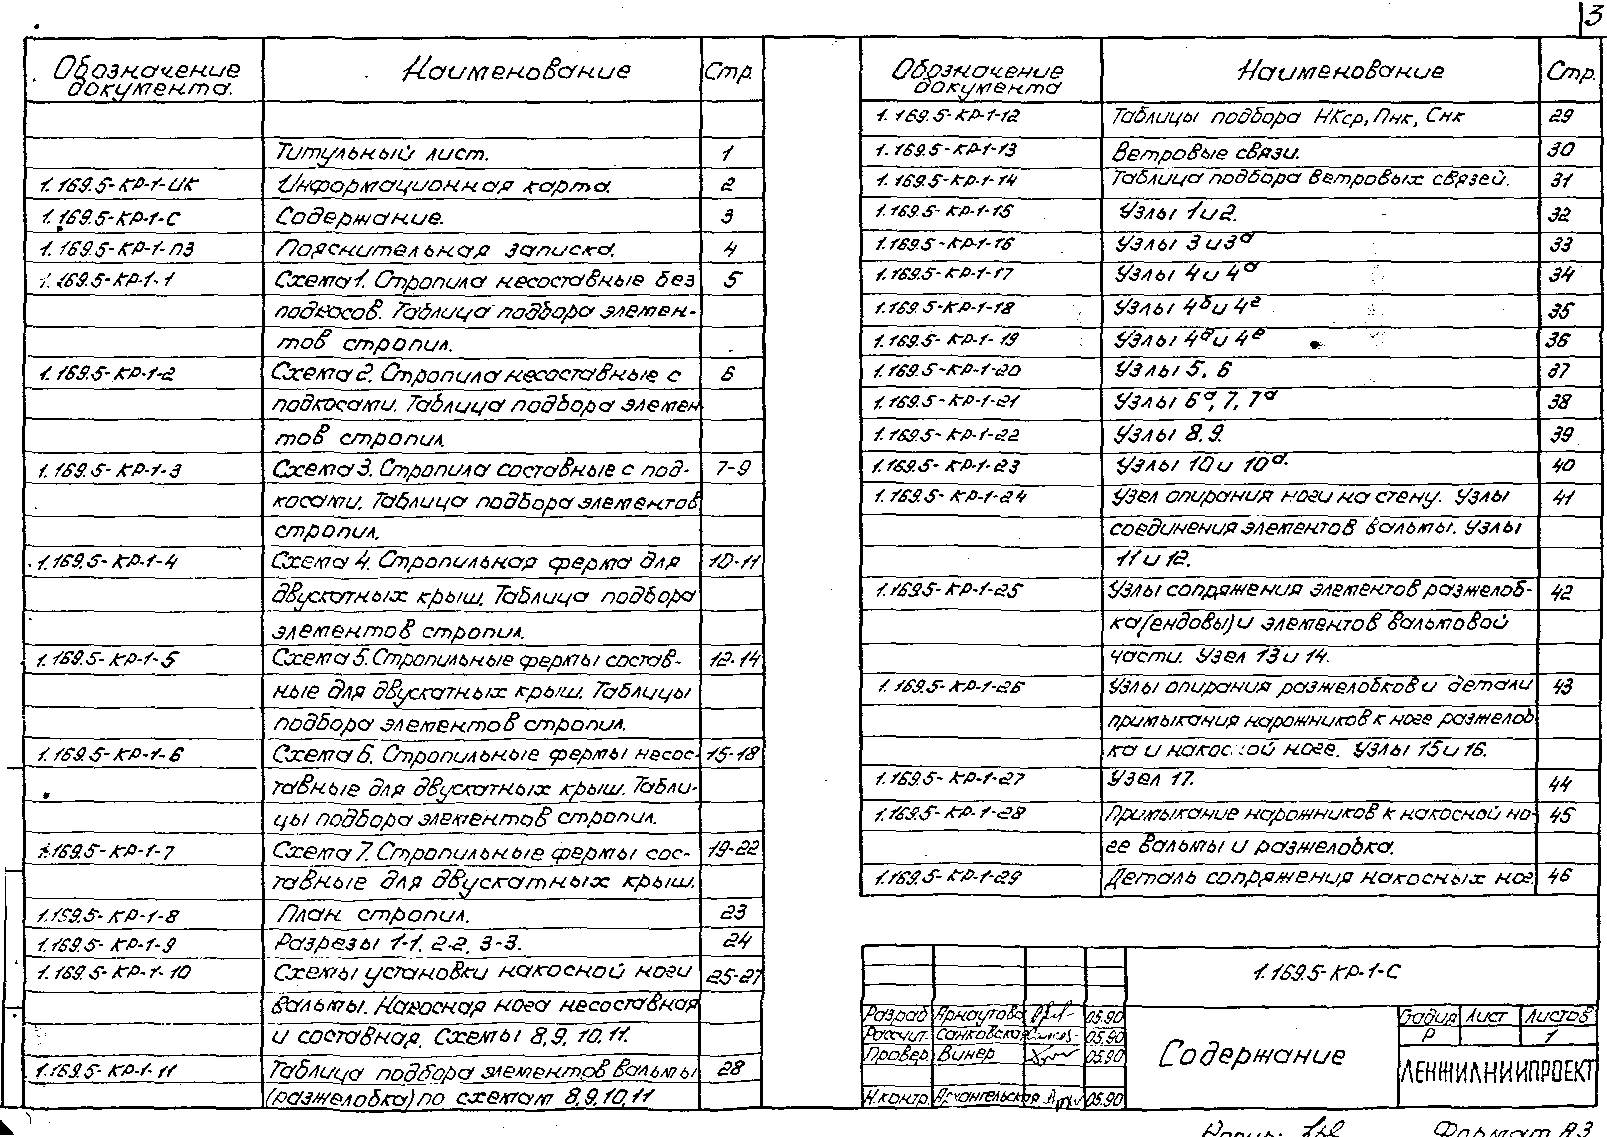 3
Обозначение документа. Наименование Стр.
Титульный лист. 1
1.169.5-КР-1-ИК Информационная карта. 2
1.169.5-КР-1-С Содержание. 3
1.169.5-КР-1-ПЗ Пояснительная записка. 4
1.169.5-КР-1-1 Схема 1. Стропила несоставные без 5
подкосов. Таблица подбора элемен-
тов стропил.
1.169.5-КР-1-2 Схема 2. Стропила несоставные с 6
подкосами. Таблица подбора элемен
тов стропил.
1.169.5-КР-1-3 Схема 3. Стропила составные с под- 7-9
косами. Таблица подбора элементов
стропил.
1.169.5-КР-1-4 Схема 4. Стропильная ферма для 10-11
двускатных крыш. Таблица подбора
элементов стропил.
1.169.5-КР-1-5 Схема 5. Стропильные фермы состав- 12-14
ные для двускатных крыш. Таблицы
подбора элементов стропил.
1.169.5-КР-1-6 Схема 6. Стропильные фермы несос- 15-18
тавные для двускатных крыш. Табли-
цы подбора элементов стропил.
1.169.5-КР-1-7 Схема 7. Стропильные фермы сос- 19-22
тавные для двускатных крыш.
1.169.5-КР-1-8 План стропил. 23
1.169.5-КР-1-9 Разрезы 1-1, 2-2, 3-3. 24
1.169.5-КР-1-10 Схемы установки накосной ноги 25-27
вальмы. Накосная нога несоставная
и составная. Схемы 8,9,10,11.
1.169.5-КР-1-11 Таблица подбора элементов вальмы 28
(разжелобка) по схемам 8,9,10,11
Обозначение документа Наименование Стр.
1.169.5-КР-1-12 Таблицы подбора НКср, Пнк, Снк 29
1.169.5-КР-1-13 Ветровые связи. 30
1.169.5-КР-1-14 Таблица подбора ветровых связей. 31
1.169.5-КР-1-15 Узлы 1 и 2. 32
1.169.5-КР-1-16 Узлы 3 и 3а 33
1.169.5-КР-1-17 Узлы 4 и 4а 34
1.169.5-КР-1-18 Узлы 4б и 4г 35
1.169.5-КР-1-19 Узлы 4д и 4е 36
1.169.5-КР-1-20 Узлы 5, 6 37
1.169.5-КР-1-21 Узлы 6а, 7, 7а 38
1.169.5-КР-1-22 Узлы 8, 9. 39
1.169.5-КР-1-23 Узлы 10 и 10а. 40
1.169.5-КР-1-24 Узел опирания ноги на стену. Узлы 41
соединения элементов вальмы. Узлы
11 и 12.
1.169.5-КР-1-25 Узлы сопряжения элементов разжелоб- 42
ка (ендовы) и элементов вальмовой
части. Узел 13 и 14.
1.169.5-КР-1-26 Узлы опирания разжелобков и детали 43
примыкания нарожников к ноге разжелоб
ка и накосной ноге. Узлы 15 и 16.
1.169.5-КР-1-27 Узел 17. 44
1.169.5-КР-1-28 Примыкание нарожников к накосной но- 45
ге вальмы и разжелобка.
1.169.5-КР-1-29 Деталь сопряжения накосных ног. 46
1.169.5-КР-1-С
Разраб Арнаутова 05.90
Рассчит. Санковская 05.90
Провер Винер 05.90
Н.контр. Архангельская 05.90
Содержание
Стадия Лист Листов
Р 1
ЛЕНЖИЛНИИПРОЕКТ
Формат А3